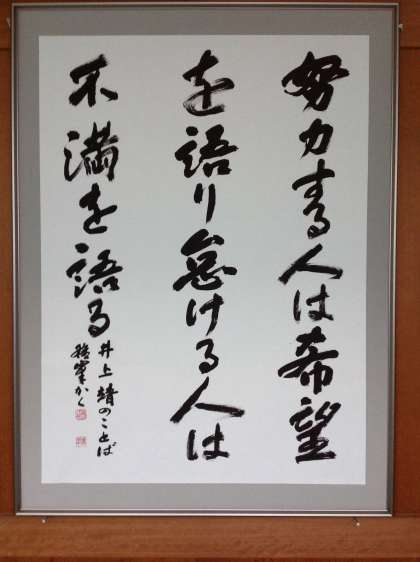 努力する人は希望
を語り怠ける人は
不満を語る
井上靖のことば
かく